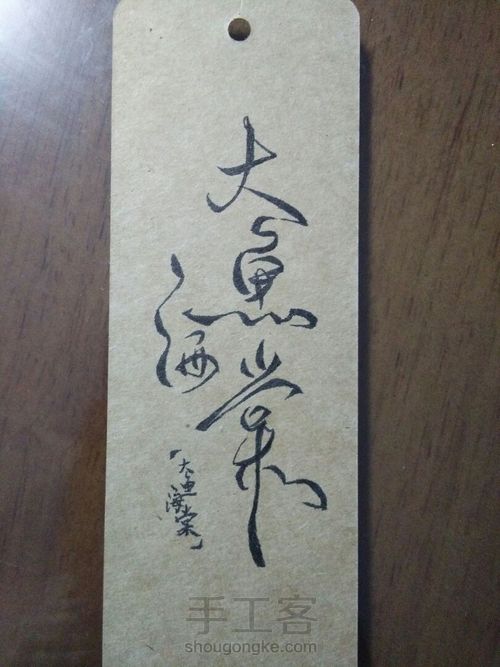 大鱼海棠
「大鱼海棠」
手工客
shougongke.com